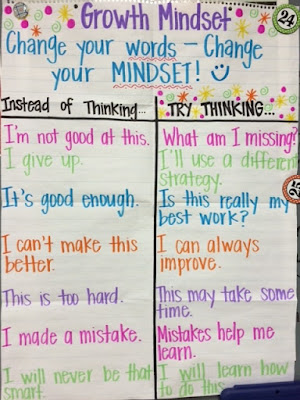 Growth Mindset
24
Change your words - Change
your MINDSET!
Instead of Thinking...
TRY THINKING...
I'm not good at this.
What am I missing?
I give up.
I'll use a different
strategy.
It's good enough.
Is this really my
best work?
I can't make this
better.
I can always
improve.
This is too hard.
This may take some
time.
I made a mistake.
Mistakes help me
learn.
I will never be that
smart.
I will learn how
to do this